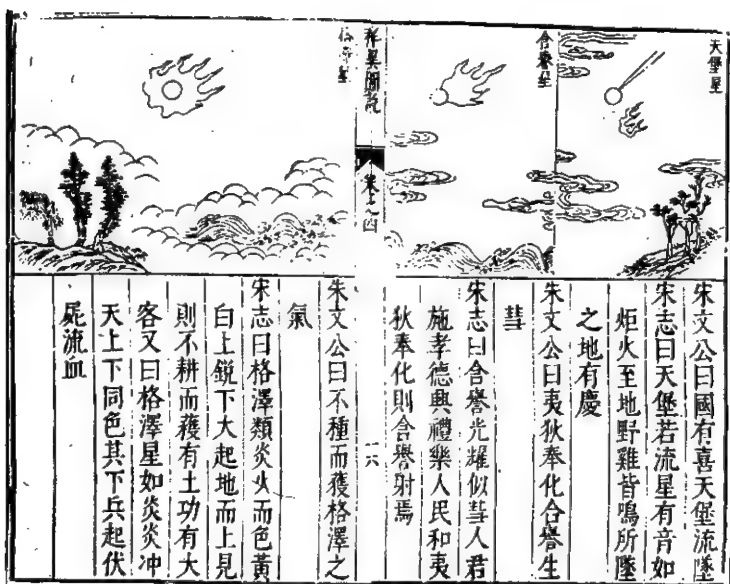 天堡星
宋文公曰國有喜天堡流墜
宋志曰天堡若流星有音如
炬火至地野雞皆鳴所墜
之地有慶
含譽星
朱文公曰夷狄奉化含譽生
彗
宋志曰含譽光耀似彗人君
施孝德興禮樂人民和夷
狄奉化則含譽射焉
祥異圖說
卷之四
一六
格澤星
朱文公曰不種而獲格澤之
氣
宋志曰格澤類炎火而色黃
白上銳下大起地而上見
則不耕而穫有土功有大
客又曰格澤星如炎炎冲
天上下同色其下兵起伏
屍流血